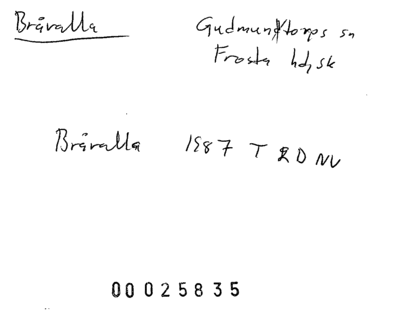 Bråvalla
Gudmuntorps sn
Frosta hd, sk
Bråvalla 1987 T 2D NV
00025835